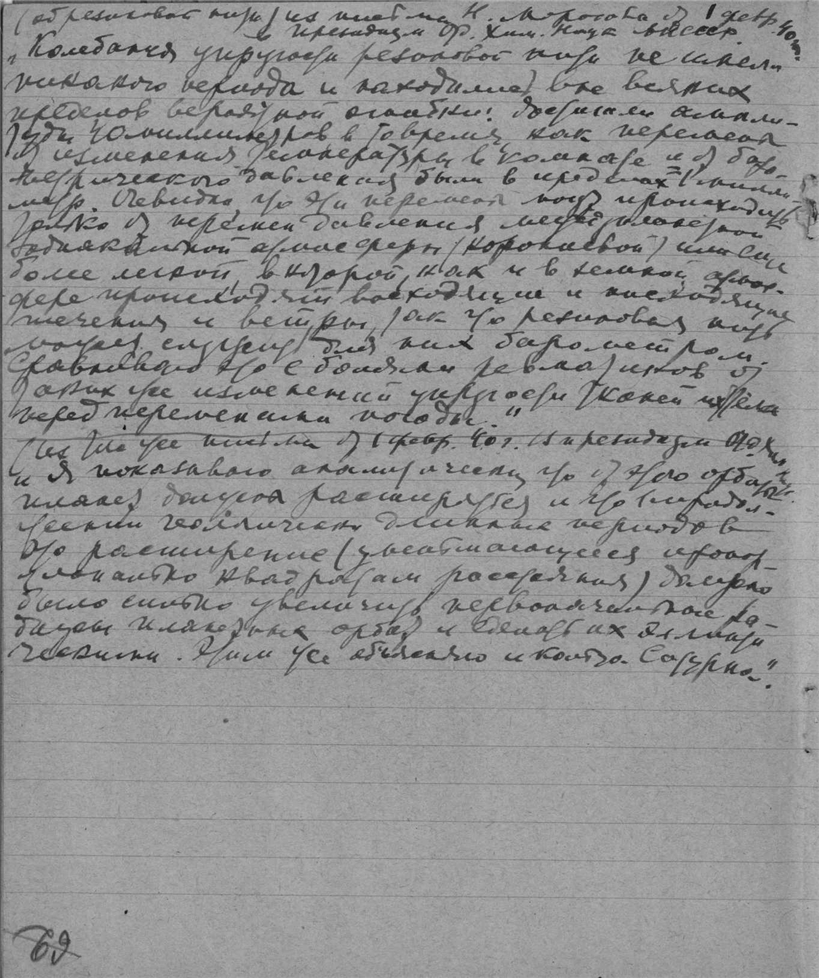 (об резиновой нити) из письма Н. Морозова от 1 февр. 40 г.
в президиум Отд. Хим. Наук АН СССР
„Колебания упругости резиновой нити не имели
никакого периода и находились вне всяких
пределов вероятной ошибки: достигали ампли-
туды 10 миллиметров в то время, как перемены
от изменения температуры в комнате и от баро-
метрического давления были в пределах 1 милли-
метр. Очевидно, что эти перемены могут происходить
только от перемен давления междупланетной
зодиакальной атмосферы (корониевой) или еще
более легкой, в которой, как и в земной атмос-
фере происходят восходящие и нисходящие
течения и ветры, так что резиновая нить
может служить для них барометром.
Сравниваю это с болями ревматиков от
таких же изменений упругости тканей их тела
перед переменами погоды."
(из того же письма от 1 февр. 40 г. в президиум Отд. Хим. Наук.
и я показываю аналитически, что от этого орбиты
планет должна расширяться и что в продол-
жении геологически длинных периодов
это расширение (увеличивающееся пропор-
ционально квадратам расстояния) должно
было сильно увеличить первоначальные ра-
диусы планетных орбит и сделать их эллипти-
ческими. Этим же объясняю и кольца Сатурна."
69